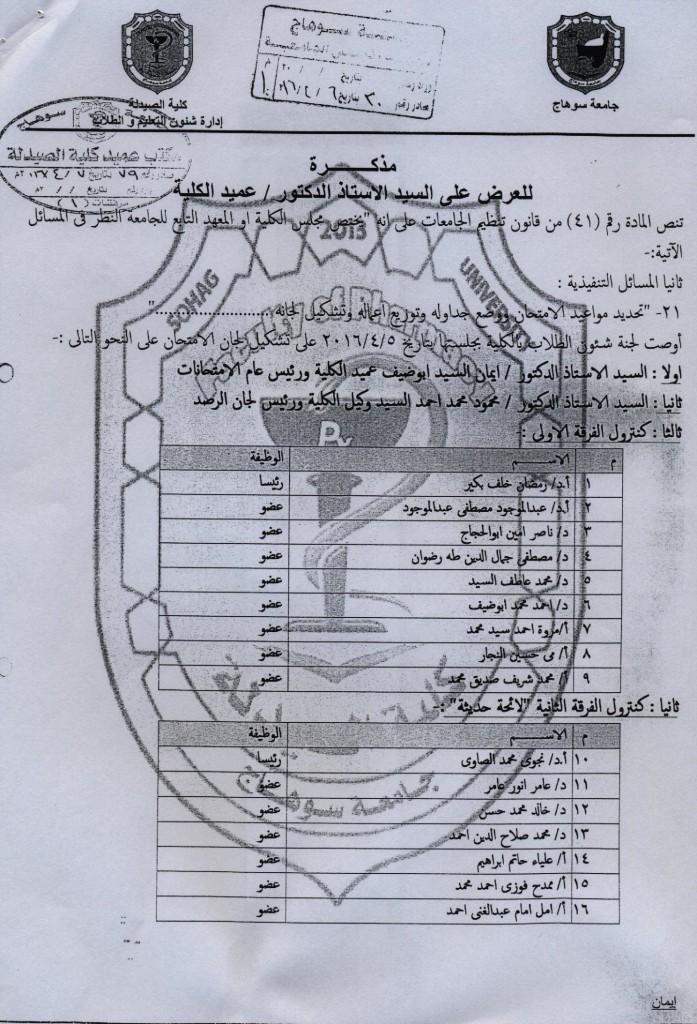 جامعة سوهاج
كلية الصيدلة
إدارة شئون التعليم و الطلاب
جامعة سوهاج
صادر رقم ٣٠ بتاريخ ٢٠١٦/٤/٦ م
سوهاج
مكتب عميد كلية الصيدلة
مذكـــرة
للعرض على السيد الاستاذ الدكتور / عميد الكلية
تنص المادة رقم (٤١) من قانون تنظيم الجامعات على انه "يختص مجلس الكلية او المعهد التابع للجامعة النظر فى المسائل
الآتية:-
ثانيا المسائل التنفيذية :
٢١- "تحديد مواعيد الامتحان ووضع جداوله وتوزيع اعماله وتشكيل لجانه ............................"
أوصت لجنة شئون الطلاب بالكلية بجلستها بتاريخ ٢٠١٦/٤/٥ على تشكيل لجان الامتحان على النحو التالى :-
اولا : السيد الاستاذ الدكتور / ايمان السيد ابوضيف عميد الكلية ورئيس عام الامتحانات
ثانيا : السيد الاستاذ الدكتور / محمود محمد احمد السيد وكيل الكلية ورئيس لجان الرصد
ثالثا : كنترول الفرقة الاولى :-
م الاســـم الوظيفة
١ أ.د/ رمضان خلف بكير رئيسا
٢ أ.د/ عبدالموجود مصطفى عبدالموجود عضو
٣ د/ ناصر امين ابوالحجاج عضو
٤ د/ مصطفى جمال الدين طه رضوان عضو
٥ د/ محمد عاطف السيد عضو
٦ د/ احمد محمد ابوضيف عضو
٧ أ/مروة احمد سيد محمد عضو
٨ أ/ مى حسين النجار عضو
٩ أ/ محمد شريف صديق محمد عضو
ثانيا : كنترول الفرقة الثانية "لائحة حديثة" :-
م الاســـم الوظيفة
١٠ أ.د/ نجوى محمد الصاوى رئيسا
١١ د/ عامر انور عامر عضو
١٢ د/ خالد محمد حسن عضو
١٣ د/ محمد صلاح الدين احمد عضو
١٤ أ/ علياء حاتم ابراهيم عضو
١٥ أ/ ممدح فوزى احمد محمد عضو
١٦ أ/ امل امام عبدالغنى احمد عضو
ايمان
2013
SOHAG UNIVERSITY
Faculty of Pharmacy
كلية الصيدلة
جامعة سوهاج